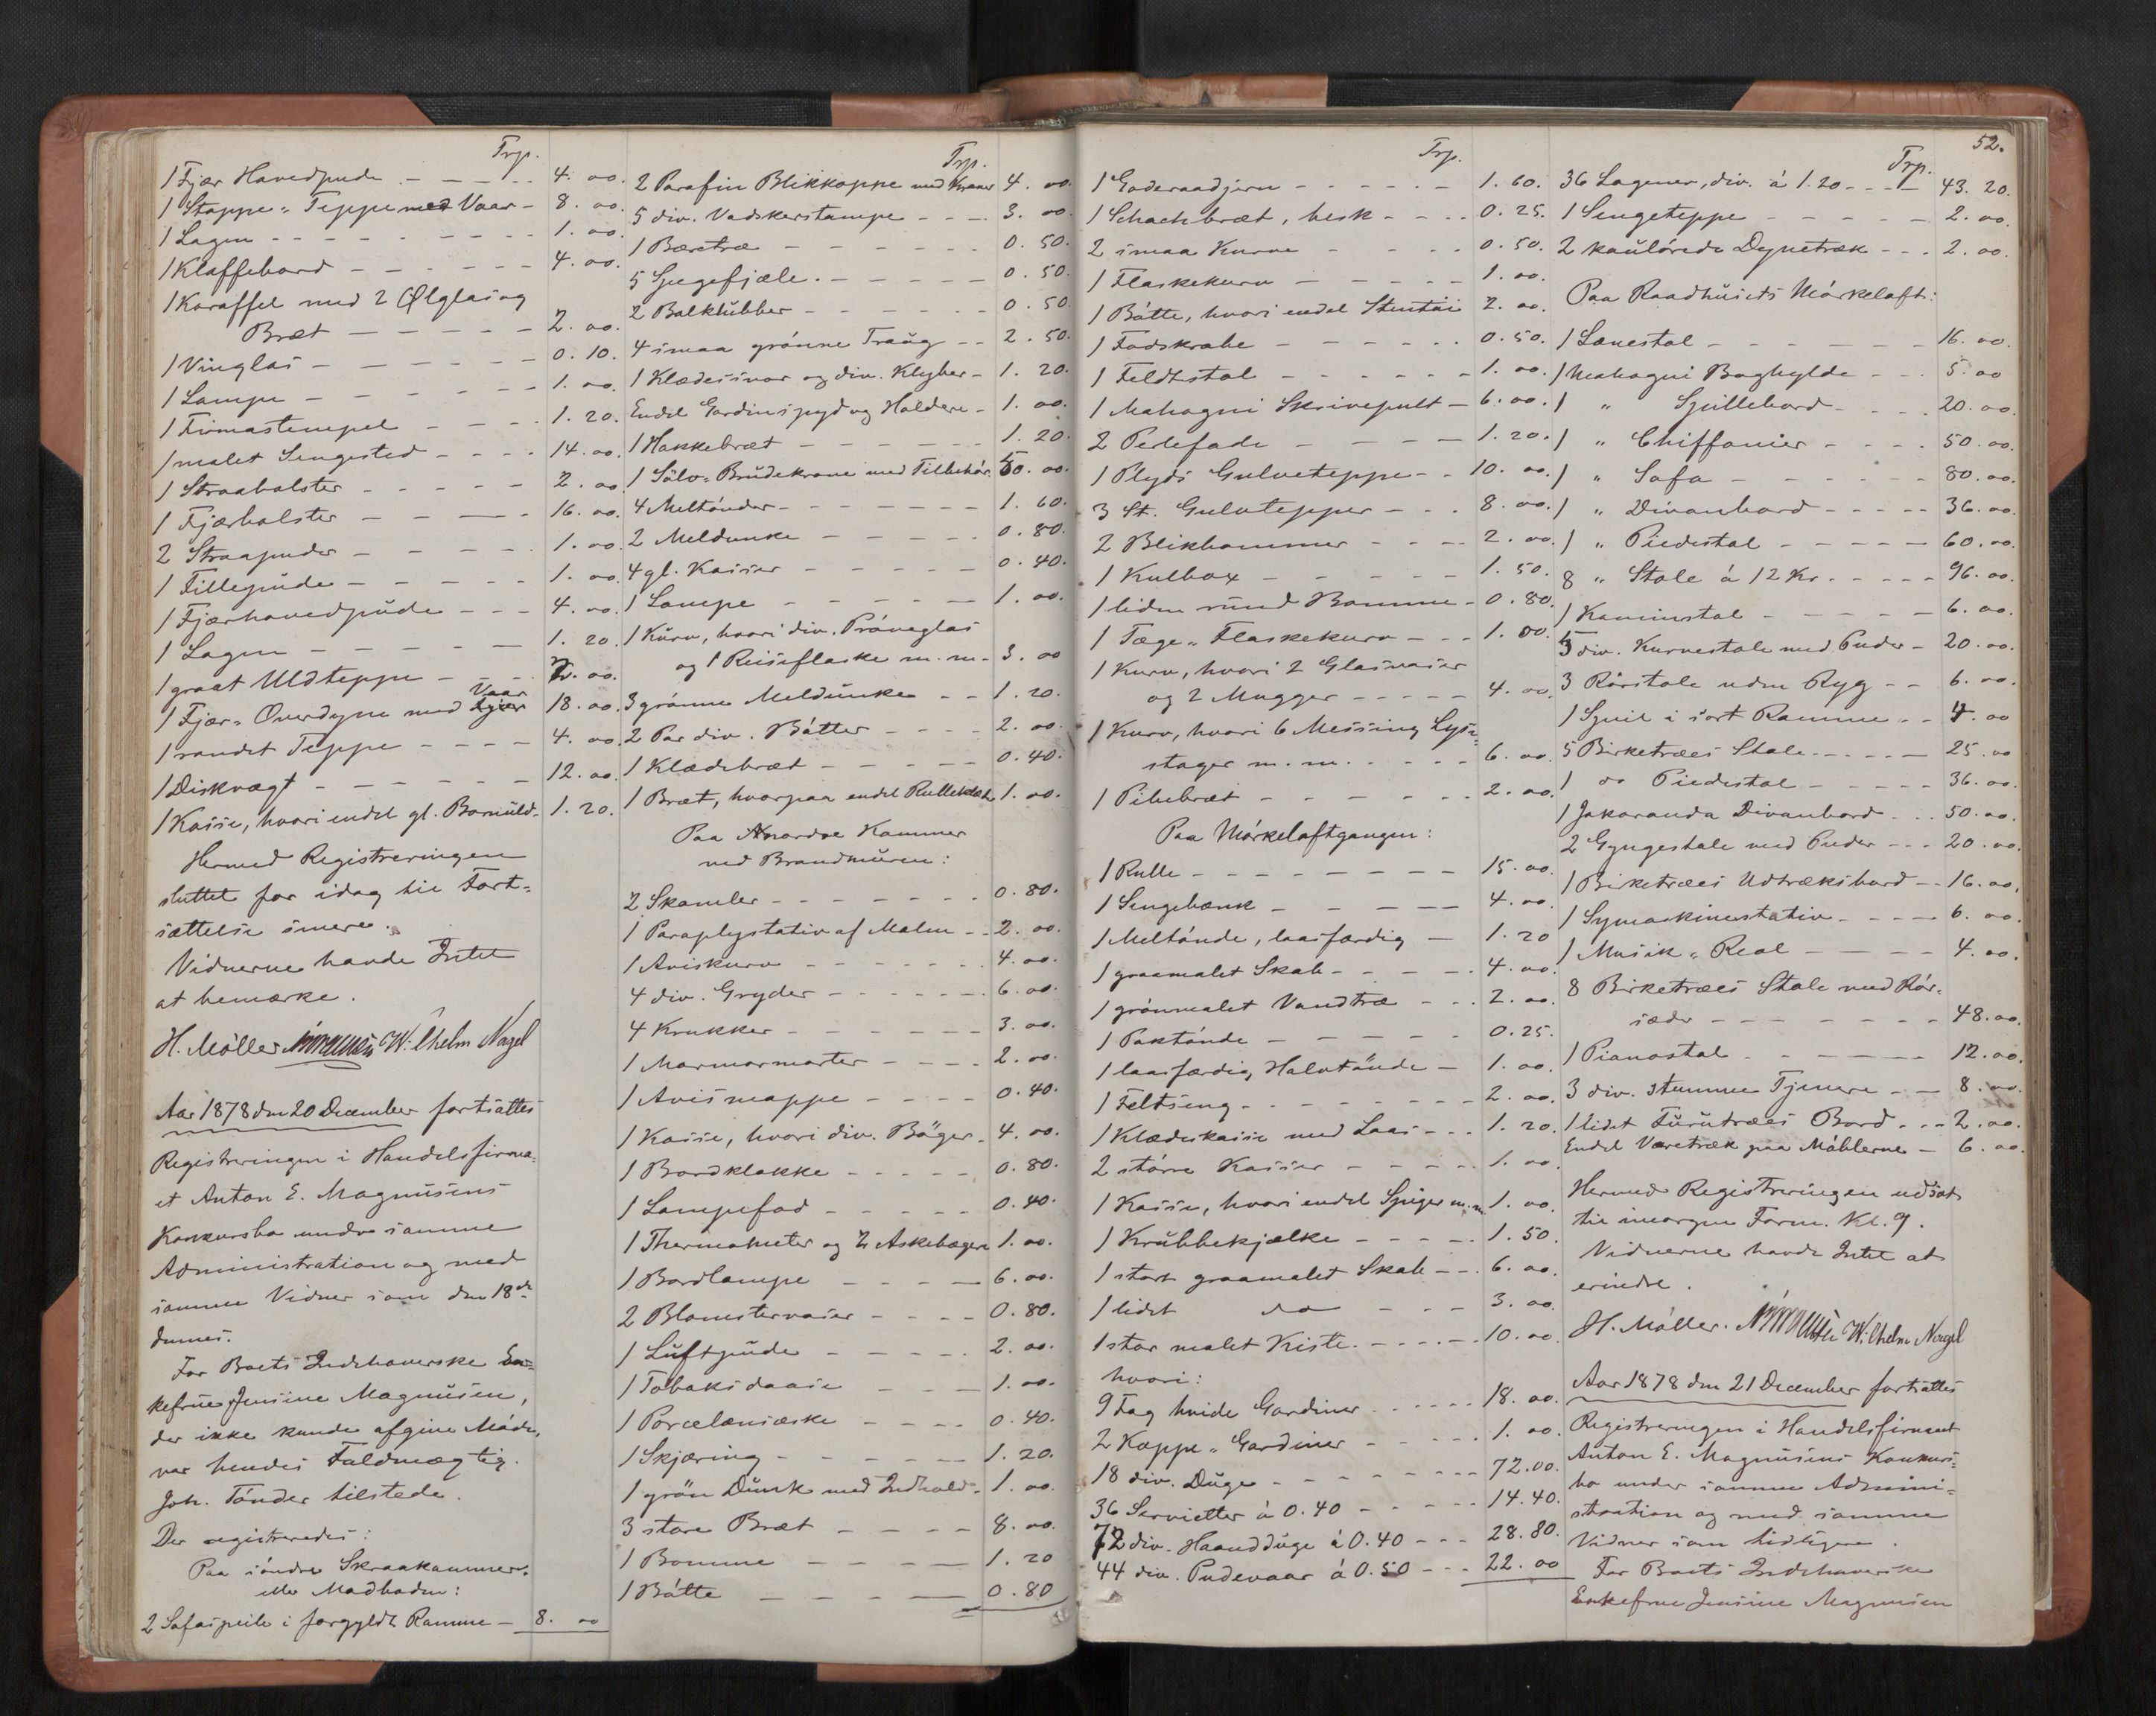 Trp.
1 Fjær Hovedpude - - - - 4. 00.
1 Stoppe= Teppe med Vaar - 8. 00.
1 Lagen - - - - - 1. 00.
1 Klaffebord - - - - - 4. 00.
1 Karaffel med 2 Ølglas og
Bræt - - - - - 2. 00.
1 Vinglas - - - - - 0. 10.
1 Lampe - - - - - 1. 00.
1 Firmastempel - - - - 1. 20.
1 malet Sengested - - - - 14. 00.
1 Straabolster - - - - - 2. 00.
1 Fjærbolster - - - - 16. 00.
2 Straapuder - - - - 1. 00.
1 Fillepude - - - - - 1. 00.
1 Fjærhovedpude - - - 4. 00.
1 Lagen - - - - - 1. 20.
1 graat Uldteppe - - - 2. 00.
1 Fjær= Overdyne med Vaar 18. 00.
1 randet Teppe - - - - 4. 00.
1 Diskvægt - - - - - 12. 00.
1 Kasse, hvori endel gl. Bomuld - 1. 20.
Hermed Registreringen
sluttet for idag til Fort=
sættelse imere.
Vidnerne havde Intet
at bemærke.
H. Möller Wilhelm Nagel
Aar 1878 den 20 December fortsattes
Registreringen i Handelsfirma=
et Anton E. Magnusens
Konkursbo under samme
Administration og med
samme Vidner som den 18de
dennes.
For Boets Indehaverske En=
kefrue Jensine Magnusen,
der ikke kunde afgive Möde,
var hendes Fuldmægtig
Joh. Tönder tilstede.
Der registreredes:
Paa söndre Skraakammer
eller Madboden:
2 Sofaspeile i forgyldt Ramme - 8. 00
Trp.
2 Parafin Blikkoppe med Kraner 4. 00.
5 div. Vadskerstampe - - - 3. 00.
1 Bæretræ - - - - - 0. 50.
5 Spegefjæle. - - - - 0. 50.
2 Balklubber - - - - - 0. 50.
4 smaa grönne Traug - - 2. 50.
1 Klædessnor og div. Klyber - 1. 20.
Endel Gardinspyd og Holdere - 1. 00.
1 Hakkebræt - - - - - 1. 20.
1 Sölv= Brudekrone med Tilbehör 50. 00.
4 Meltönder - - - - - 1. 60.
2 Meldunke - - - - - 0. 80.
4 gl. Kasser - - - - - 0. 40.
1 Lampe - - - - - 1. 00.
1 Kurv, hvori div. Pröveglas
og 1 Reiseflaske m. m. - 3. 00
3 grönne Meldunke - - 1. 20.
2 Par div. Bötter - - - 2. 00.
1 Klædebræt - - - - 0. 40.
1 Bræt, hvorpaa endel Rulleklæde 1. 00.
Paa nordre Kammer
ved Brandmuren:
2 Skamler - - - - - 0. 80.
1 Paraplystativ af Malm - - 2. 00.
1 Aviskurv - - - - - 4. 00.
4 div. Gryder - - - - - 6. 00.
4 Krukker - - - - - 3. 00.
1 Marmormorter - - - - 2. 00.
1 Avismappe - - - - 0. 40.
1 Kasse, hvori div. Böger - 4. 00.
1 Bordklokke - - - - 0. 80.
1 Lampefod - - - - - 0. 40.
1 Thermometer og 2 Askebægere 1. 00.
1 Bordlampe - - - - 6. 00.
2 Blomstervaser - - - - 0. 80.
1 Luftpude - - - - - 2. 00.
1 Tobaksdaase - - - - 1. 00.
1 Porcelænsæske - - - - 0. 40.
1 Skjæring - - - - - 1. 20.
1 grön Dunk med Indhold - 1. 00.
3 store Bræt - - - - 8. 00.
1 Bomme - - - - - 1. 20
1 Bötte - - - - - 0. 80
Trp.
1 Goderaadjern - - - - - 1. 60.
1 Schachbræt, besk - - - 0. 25.
2 smaa Kurve - - - - 0. 50.
1 Flaskekurv - - - - - 1. 00.
1 Bötte, hvori endel Stentöi 2. 00.
1 Fodskrabe - - - - - 0. 50.
1 Feldtstol - - - - - 1. 00.
1 Mahogni Skrivepult - 6. 00.
2 Perlefade - - - - - 1. 20.
1 Plyds Gulveteppe - - 10. 00.
3 St. Gulvtepper - - - 8. 00.
2 Blikkommer - - - - 2. 00.
1 Kulbox - - - - - 1. 50.
1 liden rund Bomme - 0. 80.
1 Tæge= Flaskekurv - - - 1. 00.
1 Kurv, hvori 2 Glasvaser
og 2 Mugger - - - - 4. 00.
1 Kurv, hvori 6 Messing Lyse=
stager m. m. - - - - 6. 00.
1 Pibebræt - - - - - 2. 00.
Paa Mörkeloftgangen:
1 Rulle - - - - - 15. 00.
1 Sengebænk - - - - 4. 00.
1 Meltönde, laasfærdig - 1. 20
1 graamalet Skab - - - - 4. 00.
1 grönmalet Vandtræ - - 2. 00.
1 Paktönde - - - - - 0. 25.
1 laasfærdig Halvtönde - 1. 00.
1 Feltseng - - - - - 2. 00.
1 Klædeskasse med Laas - - 1. 20.
2 större Kasser - - - - 1. 00.
1 Kasse, hvori endel Spiger m.m. 1. 00.
1 Krubbekjælke - - - - 1. 50.
1 stort graamalet Skab - - 6. 00.
1 lidet do - - - 3. 00.
1 stor malet Kiste - - - - 10. 00.
hvori:
9 Fag hvide Gardiner - - - 18. 00.
2 Kappe= Gardiner - - - - 1. 00.
18 div. Duge - - - - - 72. 00.
36 Servietter á 0. 40 - - - - 14. 40.
72 div. Haandduge á 0. 40 - - - 28. 80.
44 div. Pudevaar á 0. 50 - - - 22. 00
52.
Trp.
36 Lagener, div. á 1. 20 - - - 43. 20.
1 Sengeteppe - - - - - 2. 00.
2 koulörede Dynetræk - - - 2. 00.
Paa Raadhusets Mörkeloft:
1 Lænestol - - - - - 16. 00.
1 Mahogni Boghylde - - - 5. 00
1 " Spillebord - - - - 20. 00.
1 " Chiffonier - - - - 50. 00.
1 " Sofa - - - - - 80. 00.
1 " Divanbord - - - - 36. 00.
1 " Piedestal - - - - - 60. 00.
8 " Stole á 12 Kr. - - - - 96. 00.
1 Kaminstol - - - - - 6. 00.
5 div. Kurvestole med Puder - 20. 00.
3 Rörstole uden Ryg - - 6. 00.
1 Speil i sort Ramme - - 4. 00
5 Birketræes Stole - - - - 25. 00
1 do Piedestal - - - - - 36. 00.
1 Jakaranda Divanbord - - - 50. 00.
2 Gyngestole med Puder - - - 20. 00.
1 Birketræes Udtræksbord - - 16. 00.
1 Symaskinestativ - - - - 6. 00.
1 Musik= Reol - - - - - 4. 00.
8 Birketræes Stole med Rör=
sæder - - - - - 48. 00.
1 Pianostol - - - - - 12. 00.
3 div. stumme Tjenere - - - 8. 00.
1 lidet Furutræes Bord - - - 2. 00.
Endel Varetræk paa Möblerne - 6. 00.
Hermed Registreringen udsat
til imorgen Form. Kl. 9.
Vidnerne havde Intet at
erindre.
H. Möller. Wilhelm Nagel
Aar 1878 den 21 December fortsattes
Registreringen i Handelsfirmaet
Anton E. Magnusens Konkurs=
bo under samme Admini=
stration og med samme
Vidner som tidligere.
For Boets Indehaverske
Enkefrue Jensine Magnusen